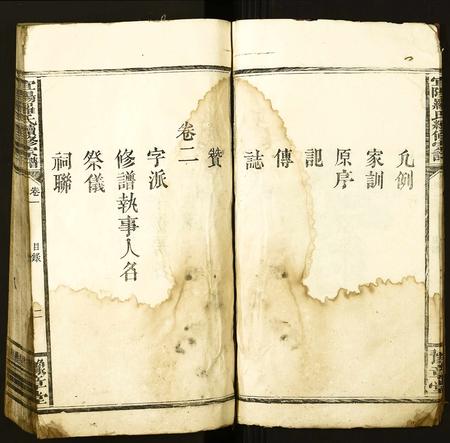 凡例
家訓
原序
記
傳
誌
贊
卷二
字派
修譜執事人名
祭儀
祠聯
宜陽羅氏續修宗譜
卷一
目錄
二
豫章堂
宜陽羅氏續修宗譜
豫章堂